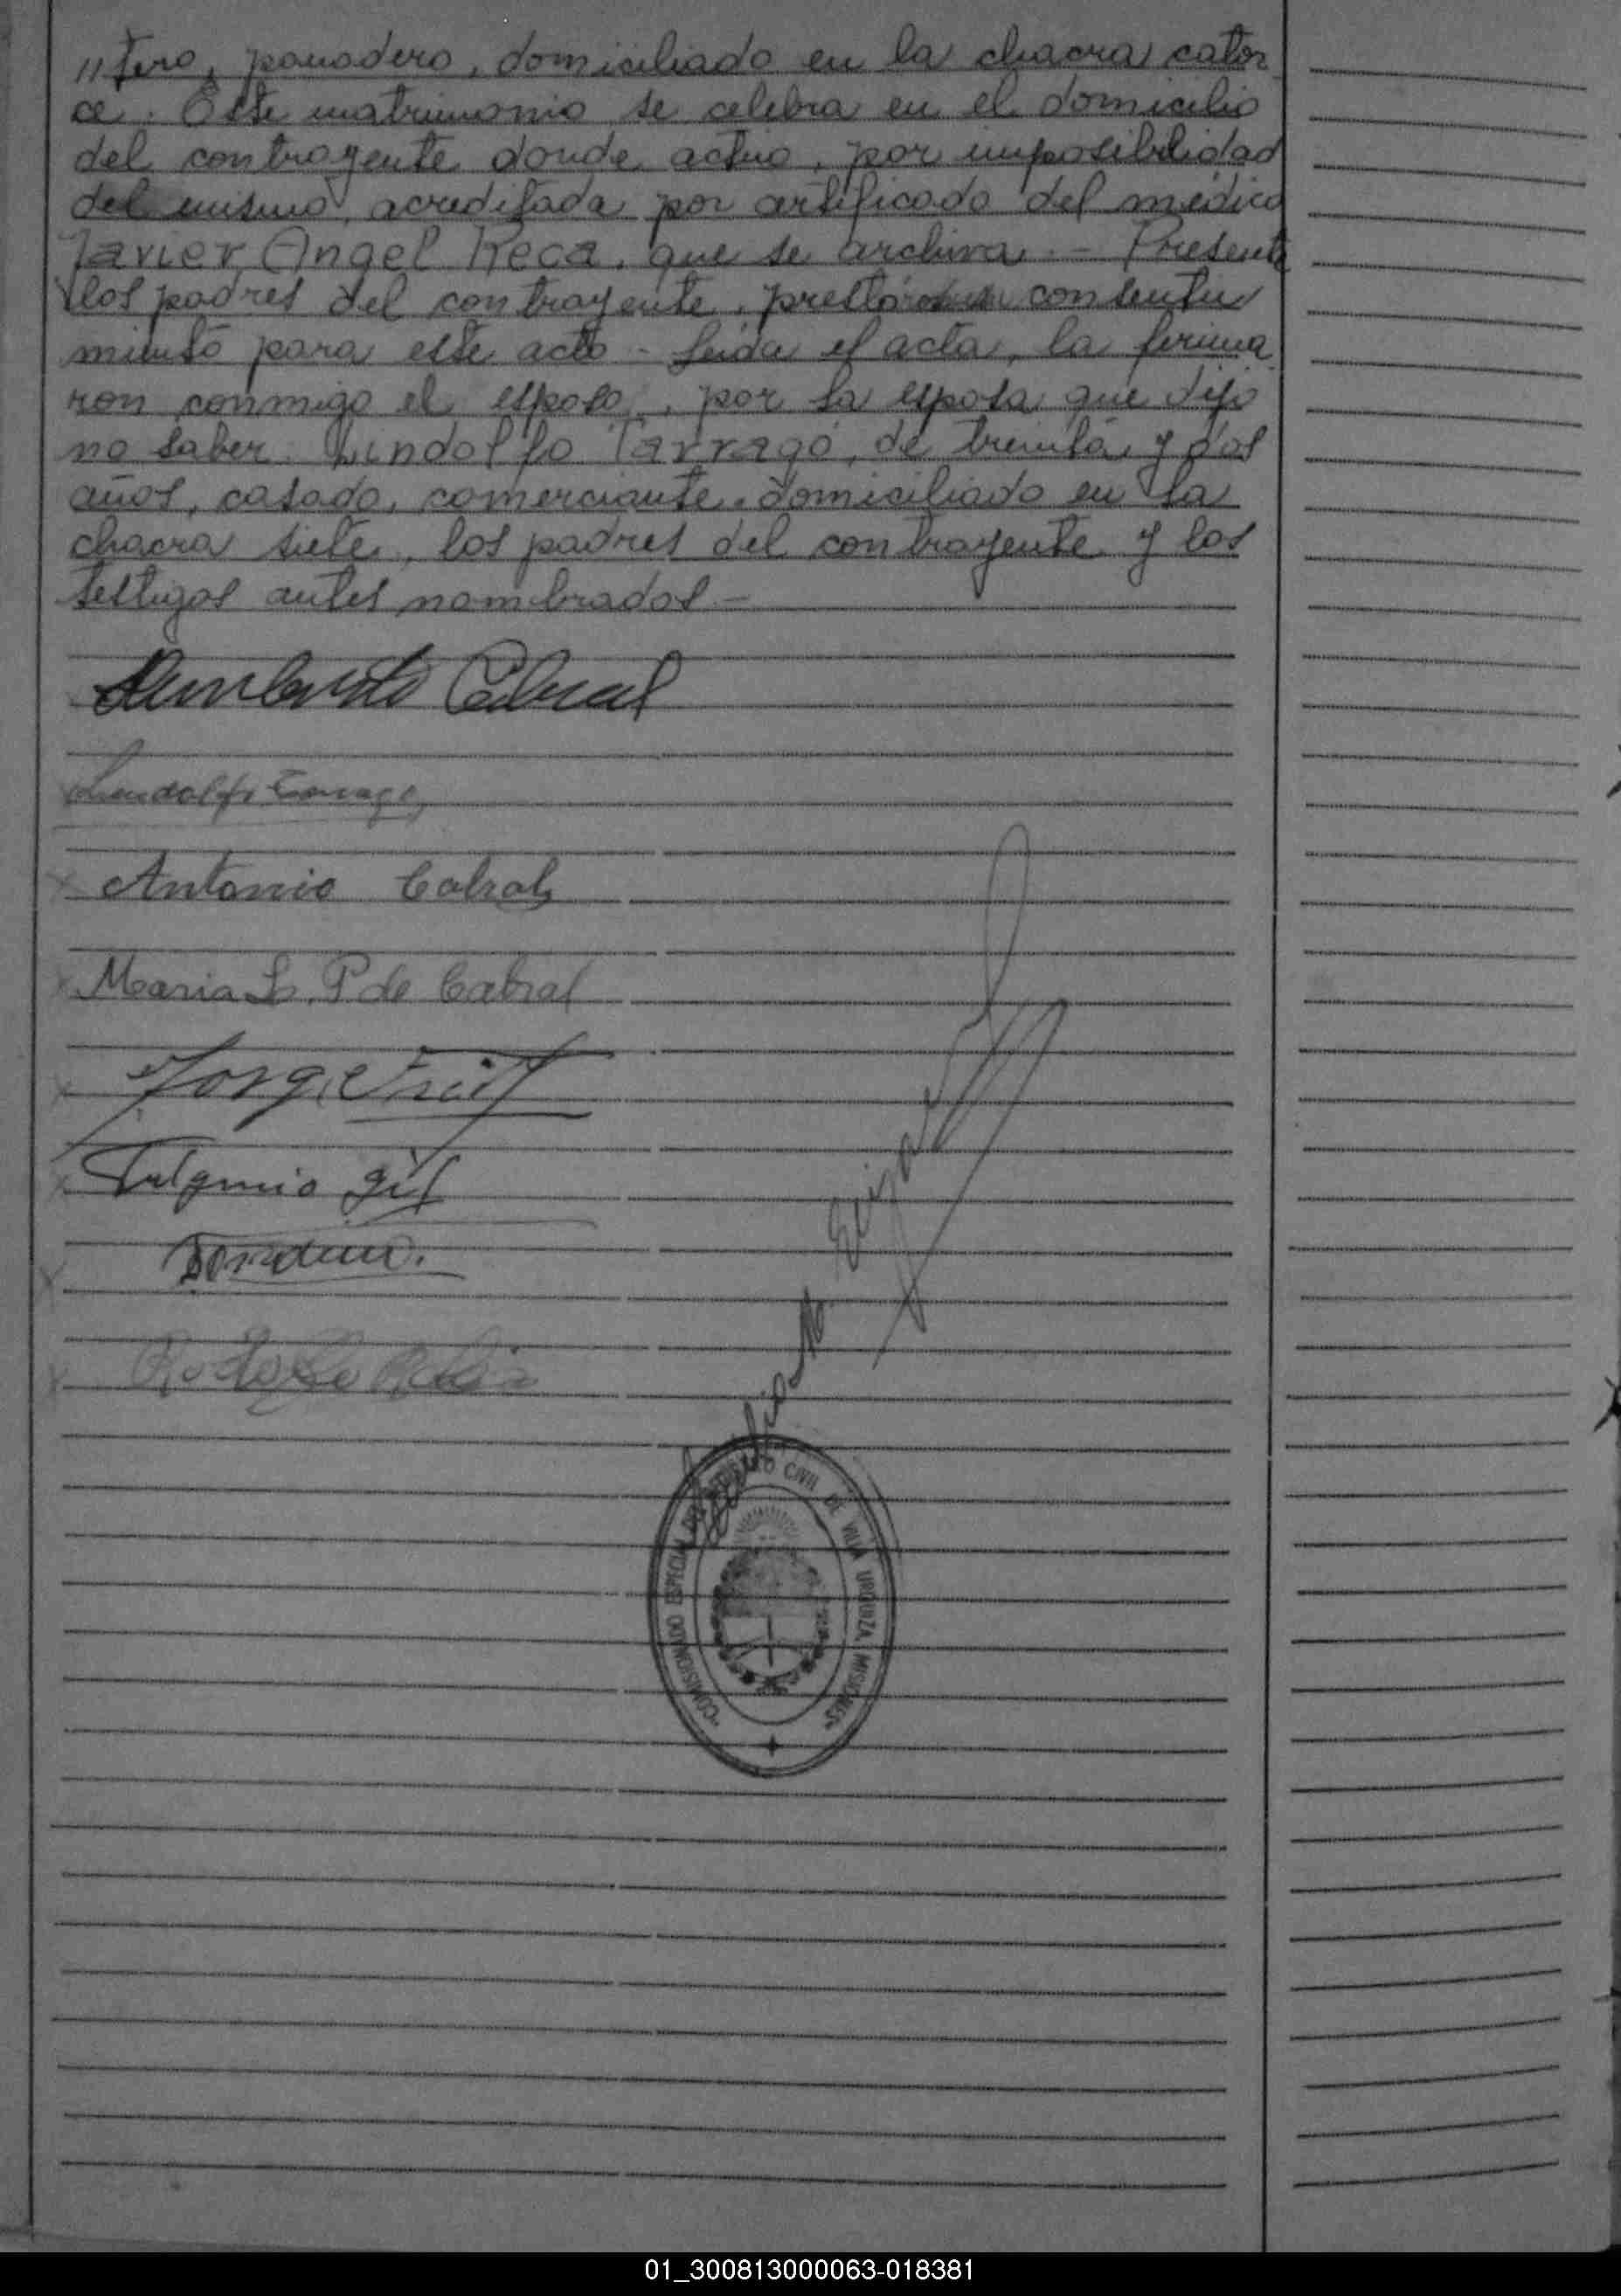 "tero, panadero, domiciliado en la chacra cator
ce. Este matrimonio se celebra en el domicilio
del contrayente donde actúo, por imposibilidad
del mismo, acreditada por certificado del médico
Javier Angel Reca, que se archiva. - Presente
los padres del contrayente, prestaron consenti
miento para este acto - Leída el acta, la firma
ron conmigo el esposo, por la esposa que dijo
no saber Lindolfo Tarragó, de treinta y dos
años, casado, comerciante, domiciliado en la
chacra siete, los padres del contrayente y los
testigos antes nombrados -
Humberto Cabral
Lindolfo Tarragó
Antonio Cabral
Maria L. P de Cabral
Jorge
Fulgencio Gil
Rodolfo
COMISIONADO ESPECIAL DEL REGISTRO CIVIL DE VILLA URQUIZA, MISIONES
01_300813000063-018381